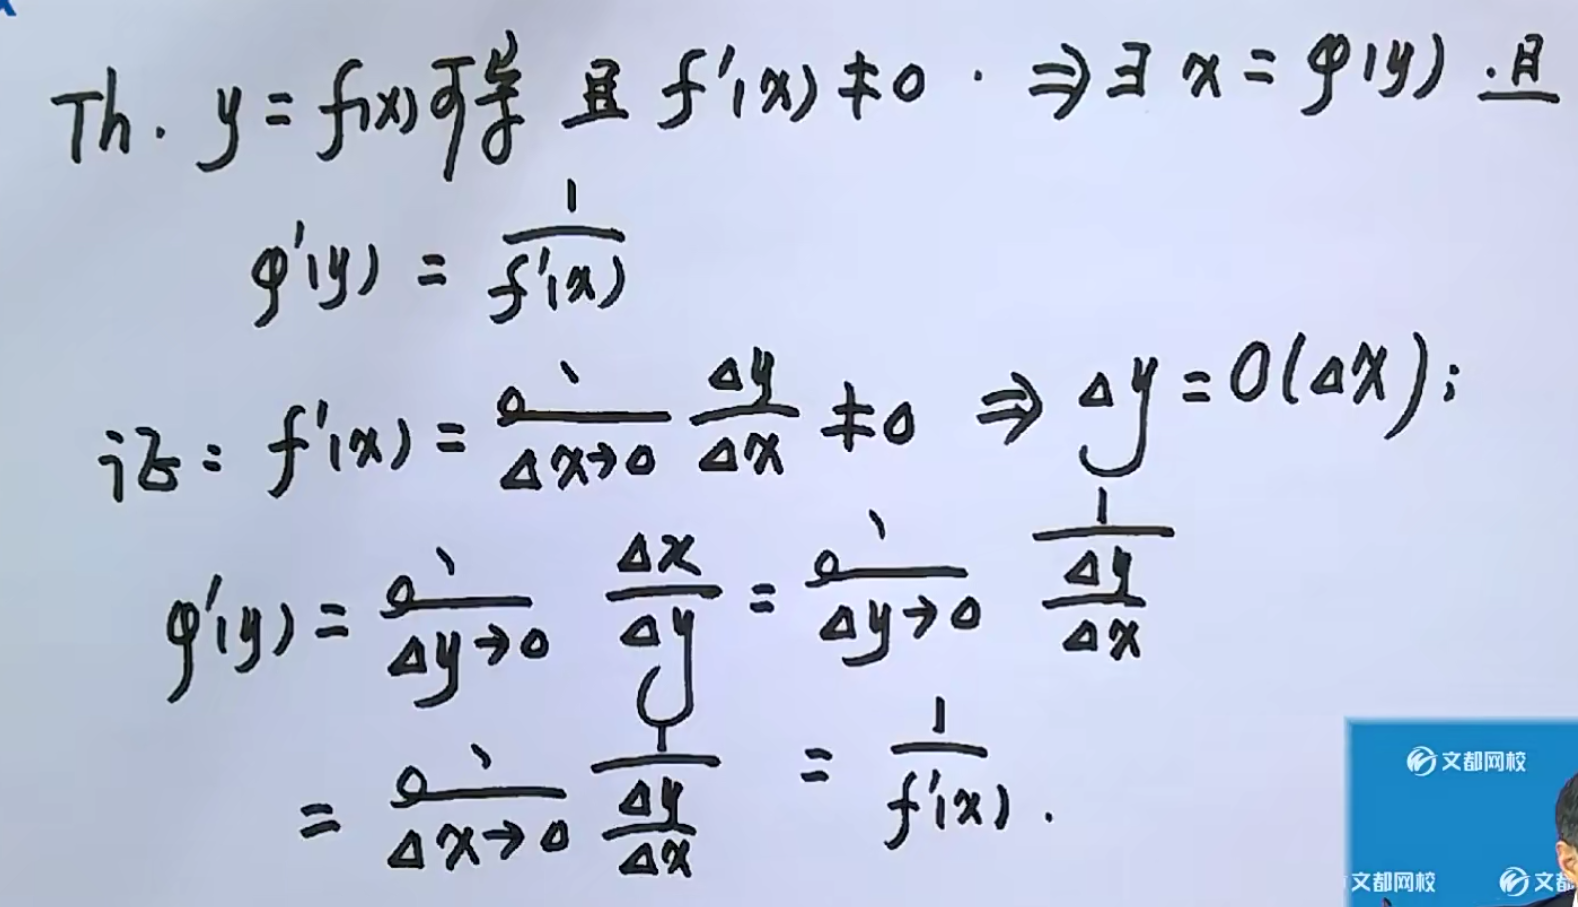 Th. y = f(x)可导 且 f'(x) ≠ 0 . ⇒ ∃ x = φ(y) . 且
φ'(y) = 1/f'(x)
证: f'(x) = lim Δx→0 Δy/Δx ≠ 0 ⇒ Δy = O(Δx);
φ'(y) = lim Δy→0 Δx/Δy = lim Δy→0 1/(Δy/Δx)
= lim Δx→0 1/(Δy/Δx) = 1/f'(x) .
文都网校
文都网校
文都